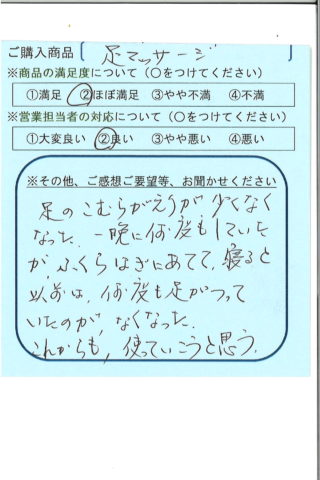 ご購入商品 〔 足マッサージ 〕
※商品の満足度について（○をつけてください）
①満足 ②ほぼ満足 ③やや不満 ④不満
※営業担当者の対応について（○をつけてください）
①大変良い ②良い ③やや悪い ④悪い
※その他、ご感想ご要望等、お聞かせください
足のこむらがえりが少なく
なった。一晩に何度もしていた
が、ふくらはぎにあてて、寝ると
以前は、何度も足がつって
いたのが、なくなった。
これからも、使っていこうと思う。